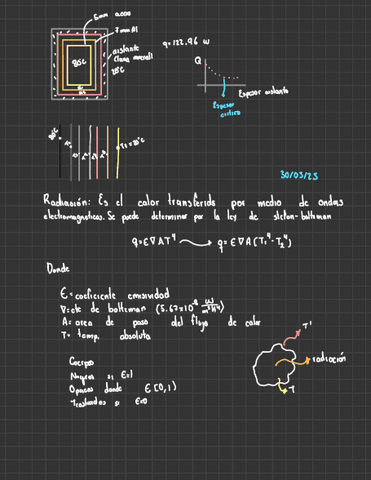 5mm acero
7mm Al
q=122.96 w
aislante
(lana mineral)
80°C
Q
Espesor aislante
Espesor
critico
30/03/23
Radiación: Es el calor transferido por medio de ondas
electromagneticas. Se puede determinar por la ley de stefan-boltzman
q=E∇AT⁴ → q=E∇A(T₁⁴-T₂⁴)
Donde
E=coeficiente emisividad
∇=cte de boltzman (5.67x10⁻⁸ W/m²K⁴)
A=area de paso del flujo de calor
T=temp. absoluta
Cuerpos
Negros si E=1
Opacos donde E[0,1)
E=0
T'
radiación
T